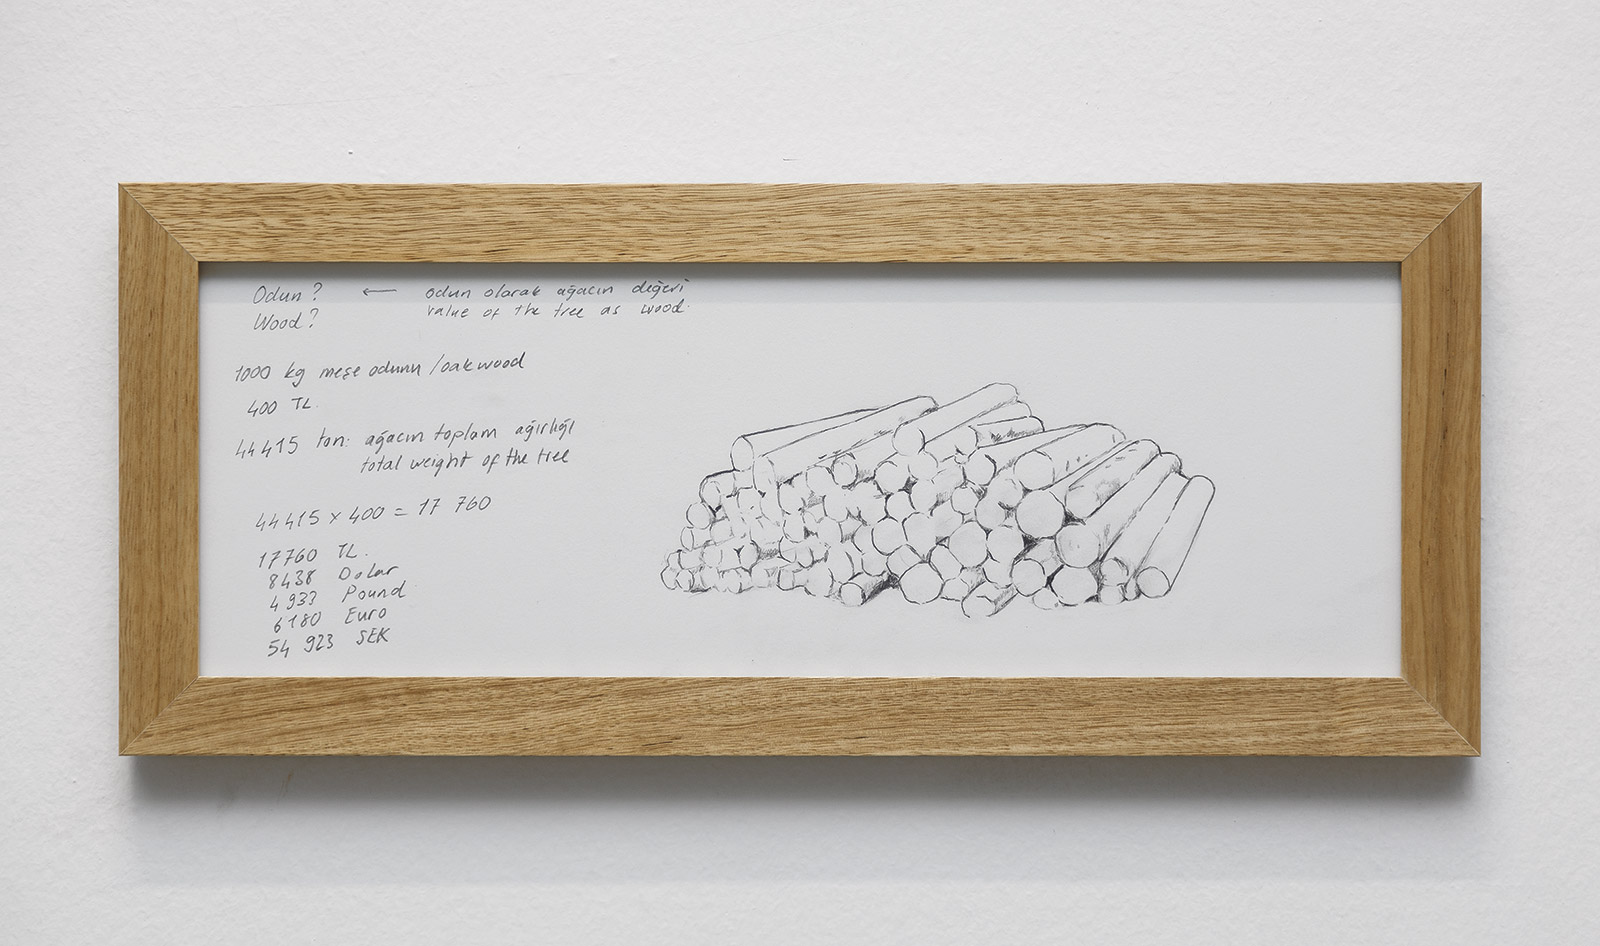 Odun ? ← odun olarak ağacın değeri
Wood ? value of the tree as wood.
1000 kg meşe odunu / oakwood
400 TL.
44415 ton: ağacın toplam ağırlığı
total weight of the tree
44415 x 400 = 17 760
17760 TL.
8438 Dolar
4 933 Pound
6180 Euro
54 923 SEK